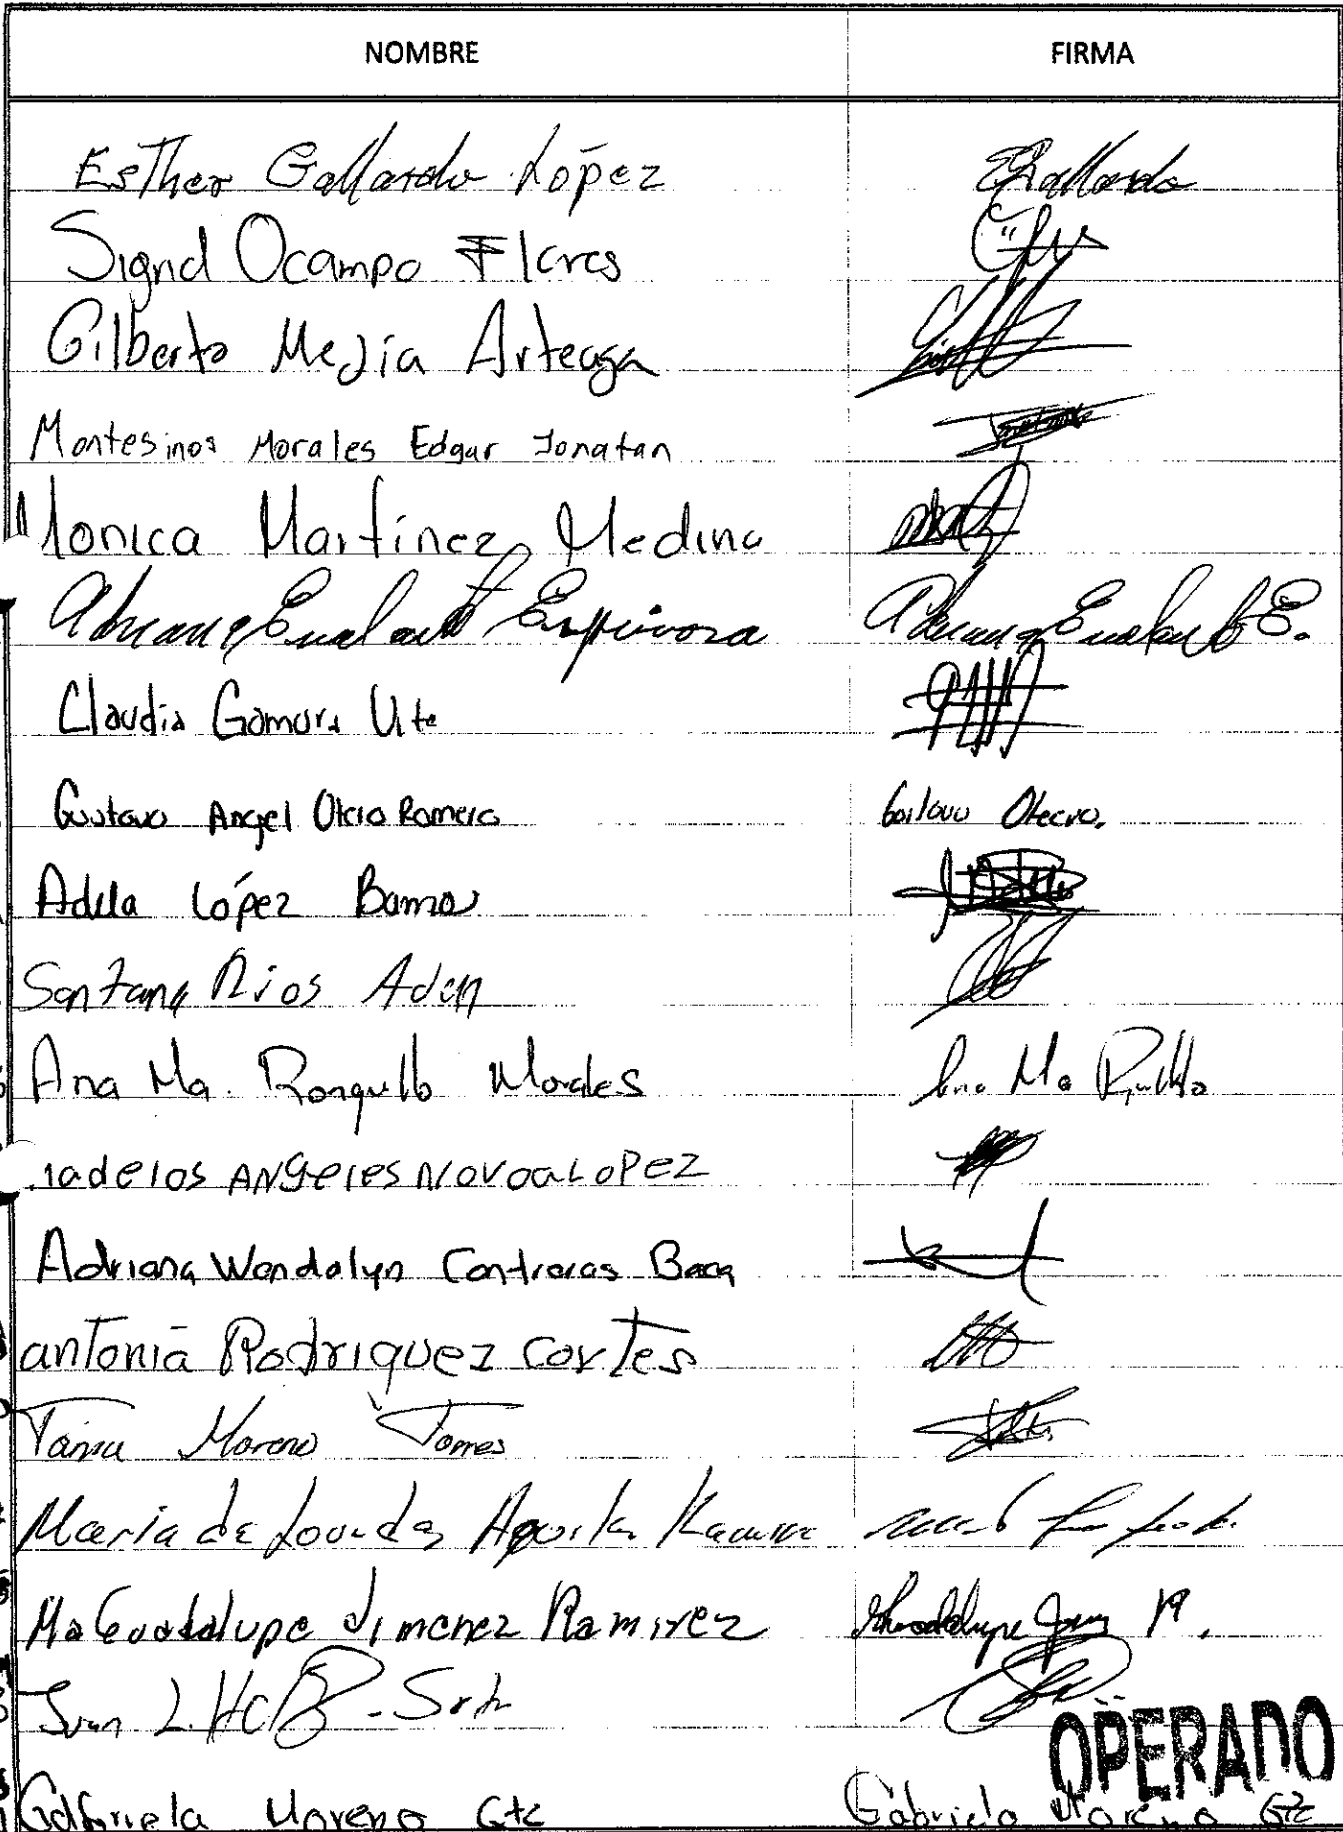 NOMBRE FIRMA
Esther Gallardo López EGallardo
Sigrid Ocampo Flores
Gilberto Mejía Arteaga
Montesinos Morales Edgar Jonatan
Monica Martínez Medina
Adriana Espinosa Adriana E.
Claudia Gamora
Gustavo Angel Otero Romero Gustavo Otero.
Adela López
Santana Rios Aden
Ana Ma. Ronquillo Morales Ana Ma
ma de los ANgeles Novoa LoPez
Adriana Wendalyn Contreras Baca
antonia Rodriguez Cortes
Tania Moreno Torres
Maria de Lourdes
Ma Guadalupe Jimenez Ramirez Guadalupe R.
OPERADO
Gabriela Moreno Gtz Gabriela Moreno Gtz